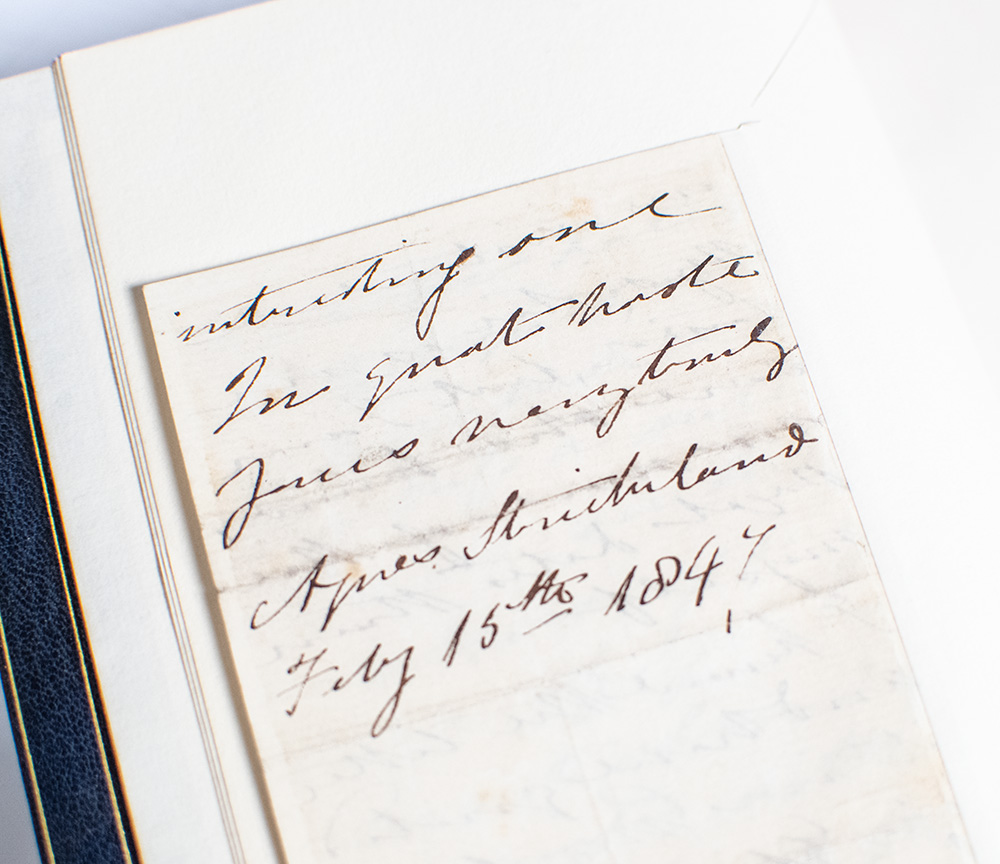 interesting one
In great haste
Yours very truly
Agnes Strickland
Feby 15th 1847